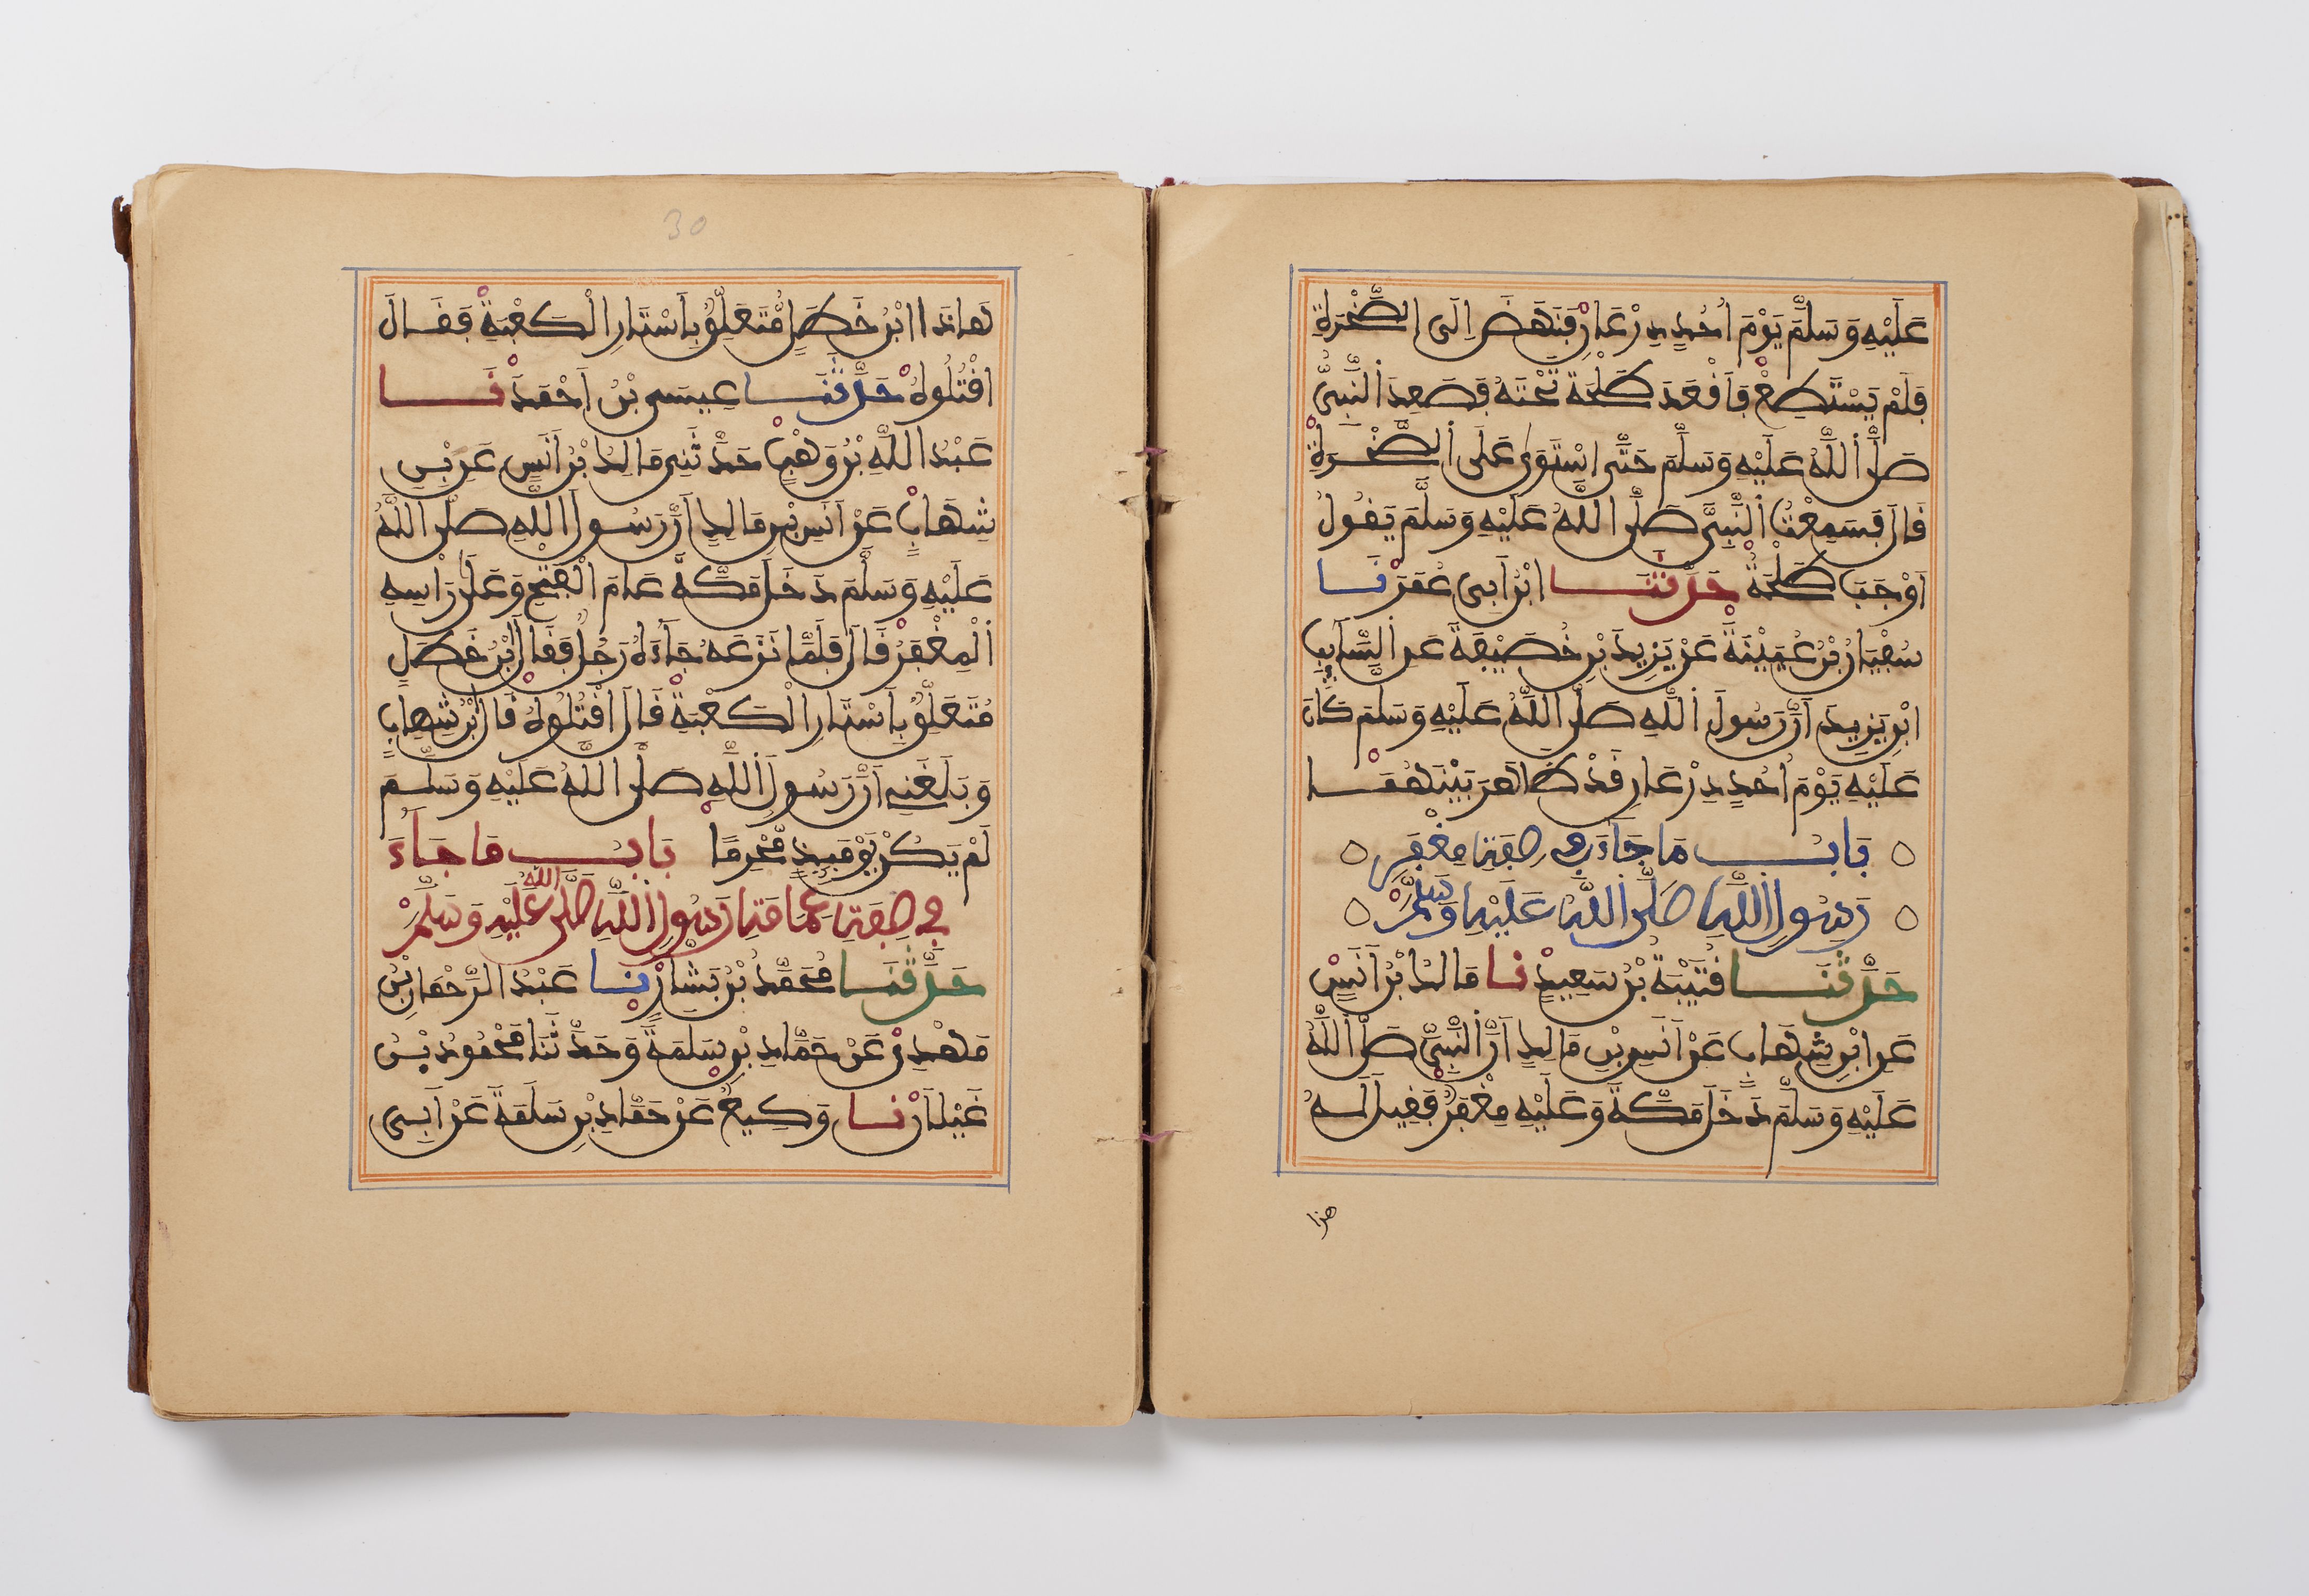 عَلَيْهِ وَسَلَّمَ يَوْمَ أُحُدٍ دِرْعَانِ فَنَهَضَ إِلَى الصَّخْرَةِ
فَلَمْ يَسْتَطِعْ فَأَقْعَدَ طَلْحَةَ تَحْتَهُ فَصَعِدَ النَّبِيُّ
صَلَّى اللَّهُ عَلَيْهِ وَسَلَّمَ حَتَّى اسْتَوَى عَلَى الصَّخْرَةِ
قَالَ فَسَمِعْتُ النَّبِيَّ صَلَّى اللَّهُ عَلَيْهِ وَسَلَّمَ يَقُولُ
أَوْجَبَ طَلْحَةُ حَدَّثَنَا ابْنُ أَبِي عُمَرَ نَا
سُفْيَانُ بْنُ عُيَيْنَةَ عَنْ يَزِيدَ بْنِ خُصَيْفَةَ عَنِ السَّائِبِ
ابْنِ يَزِيدَ أَنَّ رَسُولَ اللَّهِ صَلَّى اللَّهُ عَلَيْهِ وَسَلَّمَ كَانَ
عَلَيْهِ يَوْمَ أُحُدٍ دِرْعَانِ قَدْ ظَاهَرَ بَيْنَهُمَا
بَابُ مَا جَاءَ فِي صِفَةِ مِغْفَرِ
رَسُولِ اللَّهِ صَلَّى اللَّهُ عَلَيْهِ وَسَلَّمَ
حَدَّثَنَا قُتَيْبَةُ بْنُ سَعِيدٍ نَا مَالِكُ بْنُ أَنَسٍ
عَنِ ابْنِ شِهَابٍ عَنْ أَنَسِ بْنِ مَالِكٍ أَنَّ النَّبِيَّ صَلَّى اللَّهُ
عَلَيْهِ وَسَلَّمَ دَخَلَ مَكَّةَ وَعَلَيْهِ مِغْفَرٌ فَقِيلَ لَهُ
هذا
30
هَاذَا ابْنُ خَطَلٍ مُتَعَلِّقٌ بِأَسْتَارِ الْكَعْبَةِ فَقَالَ
اقْتُلُوهُ حَدَّثَنَا عِيسَى بْنُ أَحْمَدَ نَا
عَبْدُ اللَّهِ بْنُ وَهْبٍ حَدَّثَنِي مَالِكُ بْنُ أَنَسٍ عَنِ بْنِ
شِهَابٍ عَنْ أَنَسِ بْنِ مَالِكٍ أَنَّ رَسُولَ اللَّهِ صَلَّى اللَّهُ
عَلَيْهِ وَسَلَّمَ دَخَلَ مَكَّةَ عَامَ الْفَتْحِ وَعَلَى رَأْسِهِ
الْمِغْفَرُ قَالَ فَلَمَّا نَزَعَهُ جَاءَهُ رَجُلٌ فَقَالَ ابْنُ خَطَلٍ
مُتَعَلِّقٌ بِأَسْتَارِ الْكَعْبَةِ قَالَ اقْتُلُوهُ قَالَ ابْنُ شِهَابٍ
وَبَلَغَنِي أَنَّ رَسُولَ اللَّهِ صَلَّى اللَّهُ عَلَيْهِ وَسَلَّمَ
لَمْ يَكُنْ يَوْمَئِذٍ مُحْرِمًا بَابُ مَا جَاءَ
فِي صِفَةِ عِمَامَةِ رَسُولِ اللَّهِ صَلَّى اللَّهُ عَلَيْهِ وَسَلَّمَ
حَدَّثَنَا مُحَمَّدُ بْنُ بَشَّارٍ نَا عَبْدُ الرَّحْمَانِ بْنُ
مَهْدِيٍّ عَنْ حَمَّادِ بْنِ سَلَمَةَ وَحَدَّثَنَا مَحْمُودُ بْنُ
غَيْلَانَ نَا وَكِيعٌ عَنْ حَمَّادِ بْنِ سَلَمَةَ عَنْ أَبِي